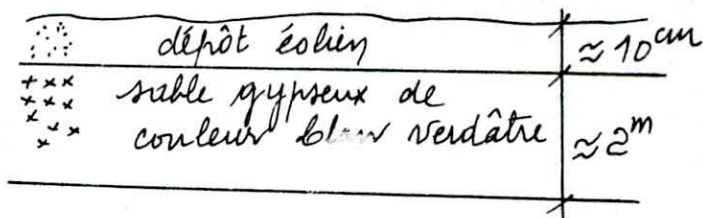 dépôt éolien ≈ 10 cm
sable gypseux de
couleur verdâtre ≈ 2 m